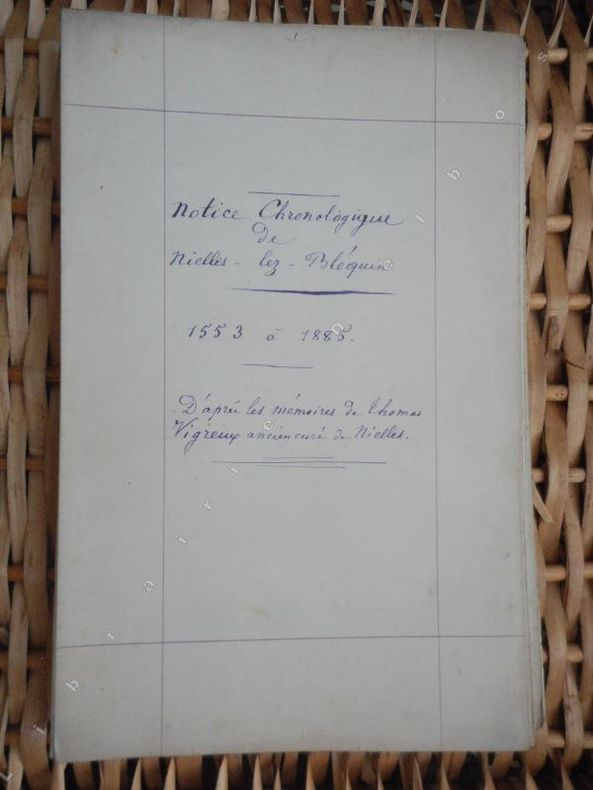 Notice Chronologique
de
Nielles - lez - Bléquin
1553 à 1885.
D'après les mémoires de Thomas
Vigreux ancien curé de Nielles.